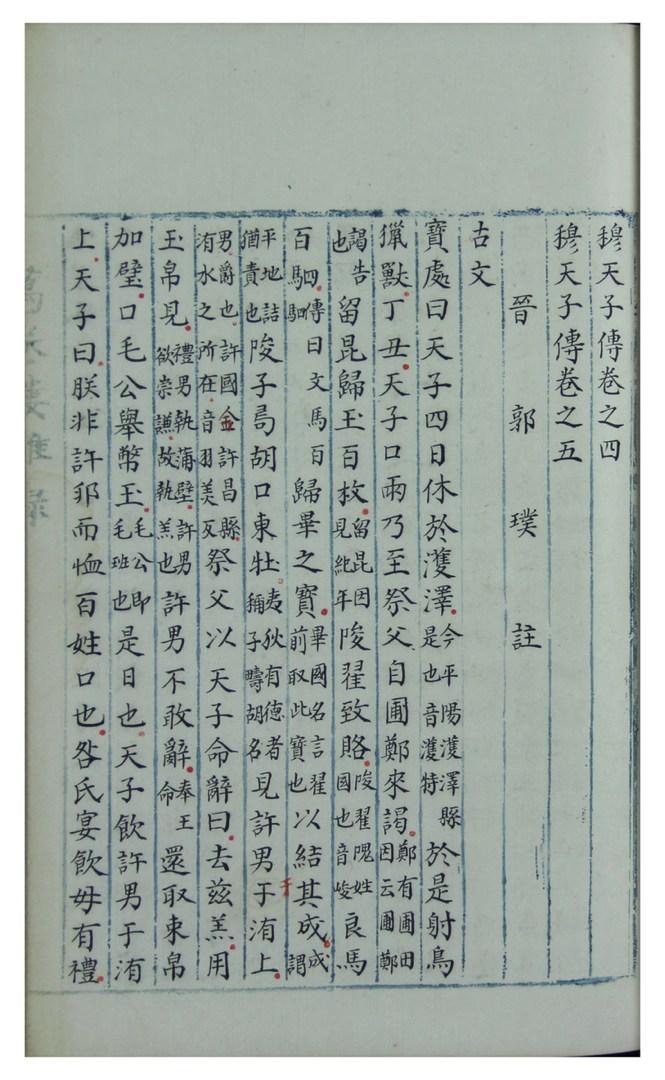 穆天子傳卷之四
穆天子傳卷之五
晉 郭 璞 註
古文
寶處曰天子四日休於濩澤今平陽濩澤縣是也音濩特於是射鳥
獵獸丁丑天子口雨乃至祭父自圃鄭來謁鄭有圃田因云圃鄭
謁告也留昆歸玉百枚留昆因見紀年陖翟致賂陖翟隗姓國也音峻良馬
百駟傳曰文馬百駟歸畢之寶畢國名言翟前取此寶也以結其成成謂
平地詰猶責也陖子咼胡口東牡夷狄有德者稱子疇胡名見許男于洧上
男爵也許國金許昌縣洧水之所在音羽美反祭父以天子命辭曰去兹羔用
玉帛見禮男執蒲璧許男欲崇謙故執羔也許男不敢辭奉王命還取束帛
加璧口毛公舉幣玉毛公即毛班也是日也天子飲許男于洧
上天子曰朕非許邦而恤百姓口也咎氏宴飲毋有禮